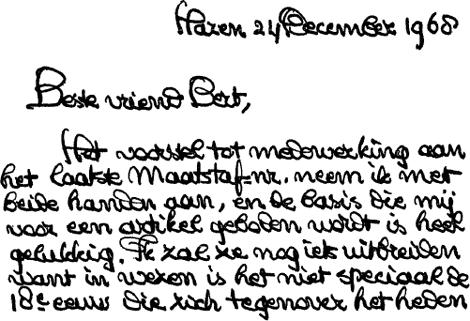 Haren 24 December 1968
Beste vriend Bert,
Het voorstel tot medewerking aan
het laatste Maatstaf-nr. neem ik met
beide handen aan, en de basis die mij
voor een artikel geboden wordt is heel
gelukkig. Ik zal ze nog iets uitbreiden
want in wezen is het niet speciaal de
18e eeuw die zich tegenover het heden